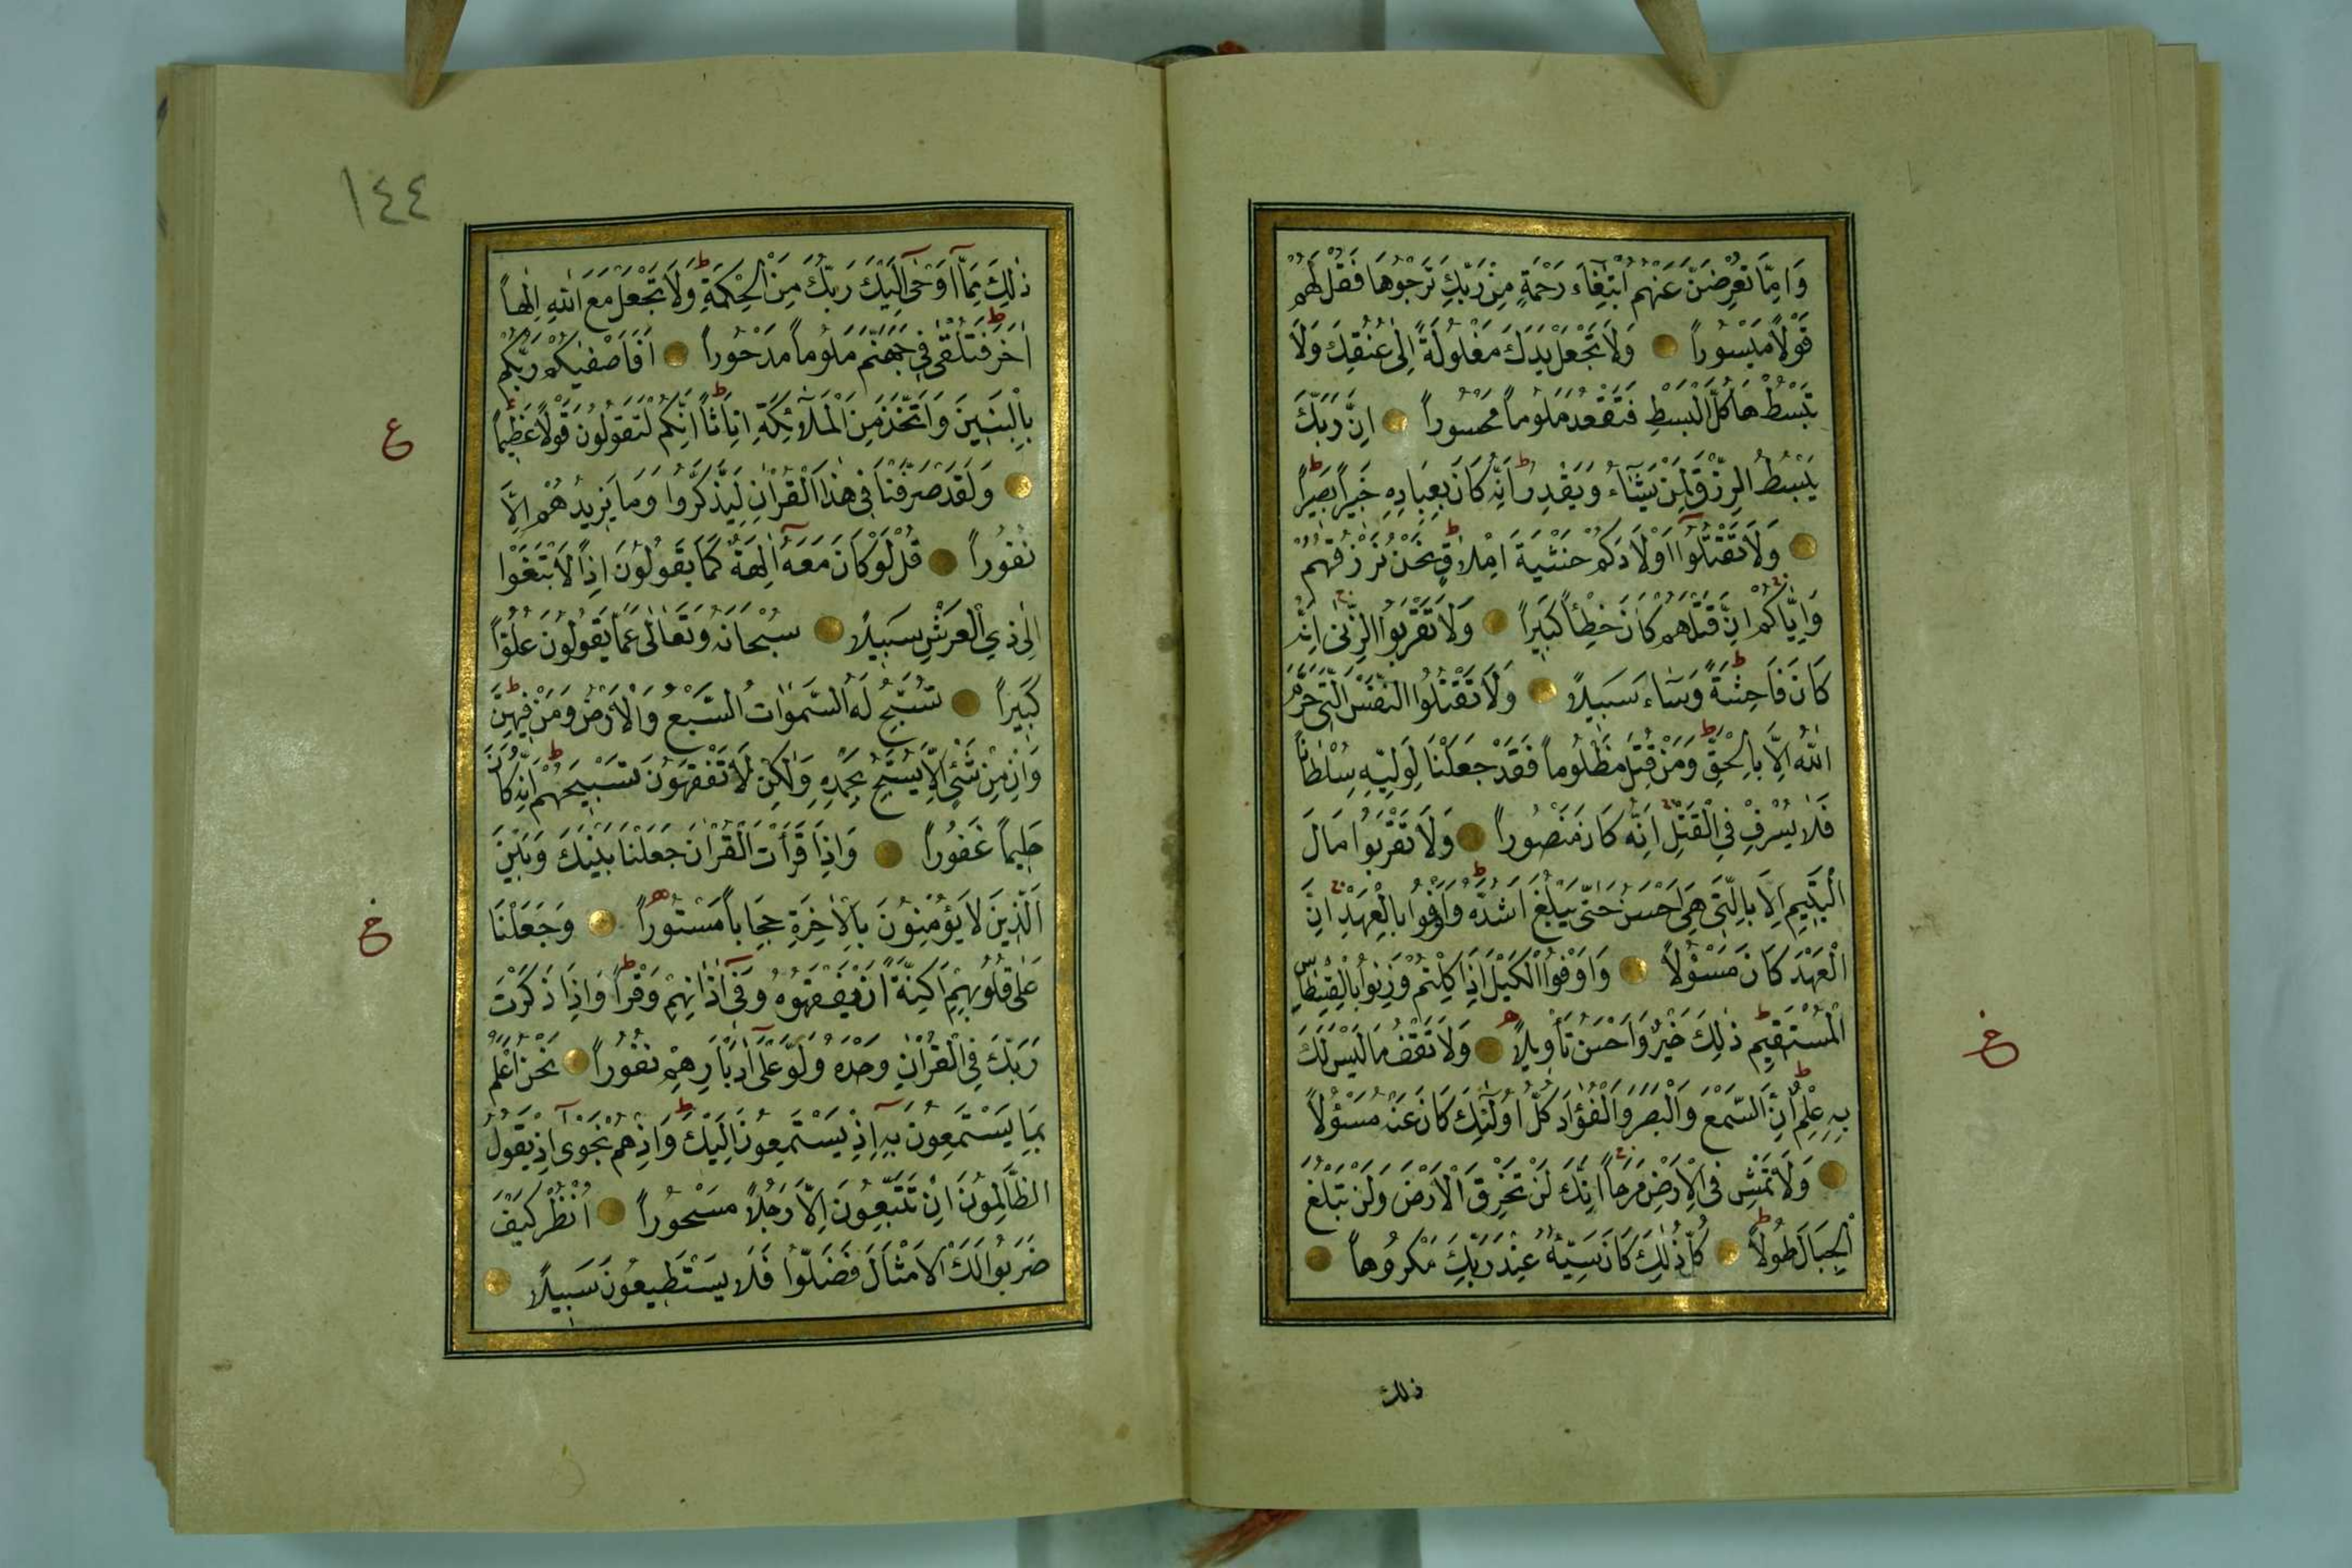 وَاِمَّا تُعْرِضَنَّ عَنْهُمُ ابْتِغَاءَ رَحْمَةٍ مِنْ رَبِّكَ تَرْجُوهَا فَقُلْ لَهُمْ
قَوْلاً مَيْسُوراً وَلَا تَجْعَلْ يَدَكَ مَغْلُولَةً اِلٰى عُنُقِكَ وَلَا
تَبْسُطْهَا كُلَّ الْبَسْطِ فَتَقْعُدَ مَلُوماً مَحْسُوراً اِنَّ رَبَّكَ
يَبْسُطُ الرِّزْقَ لِمَنْ يَشَٓاءُ وَيَقْدِرُ ط اِنَّهُ كَانَ بِعِبَادِهِ خَبِيراً بَصِيراً ط
وَلَا تَقْتُلُٓوا اَوْلَادَكُمْ خَشْيَةَ اِمْلَاقٍ ط نَحْنُ نَرْزُقُهُمْ
وَاِيَّاكُمْ اِنَّ قَتْلَهُمْ كَانَ خِطْأً كَبِيراً وَلَا تَقْرَبُوا الزِّنٰى اِنَّهُ
كَانَ فَاحِشَةً ط وَسَاءَ سَبِيلاً وَلَا تَقْتُلُوا النَّفْسَ الَّتِي حَرَّمَ
اللّٰهُ اِلَّا بِالْحَقِّ ط وَمَنْ قُتِلَ مَظْلُوماً فَقَدْ جَعَلْنَا لِوَلِيِّهِ سُلْطَاناً
فَلَا يُسْرِفْ فِي الْقَتْلِ اِنَّهُ كَانَ مَنْصُوراً وَلَا تَقْرَبُوا مَالَ
الْيَتِيمِ اِلَّا بِالَّتِي هِيَ اَحْسَنُ حَتّٰى يَبْلُغَ اَشُدَّهُ ط وَاَوْفُوا بِالْعَهْدِ اِنَّ
الْعَهْدَ كَانَ مَسْؤُلاً وَاَوْفُوا الْكَيْلَ اِذَا كِلْتُمْ وَزِنُوا بِالْقِسْطَاسِ
الْمُسْتَقِيمِ ط ذٰلِكَ خَيْرٌ وَاَحْسَنُ تَأْوِيلاً وَلَا تَقْفُ مَا لَيْسَ لَكَ
بِهِ عِلْمٌ ط اِنَّ السَّمْعَ وَالْبَصَرَ وَالْفُؤَادَ كُلُّ اُولٰٓئِكَ كَانَ عَنْهُ مَسْؤُلاً
وَلَا تَمْشِ فِي الْاَرْضِ مَرَحاً اِنَّكَ لَنْ تَخْرِقَ الْاَرْضَ وَلَنْ تَبْلُغَ
الْجِبَالَ طُولاً ط كُلُّ ذٰلِكَ كَانَ سَيِّئُهُ عِنْدَ رَبِّكَ مَكْرُوهاً
ذلك
١٤٤
ذٰلِكَ مِمَّٓا اَوْحٰٓى اِلَيْكَ رَبُّكَ مِنَ الْحِكْمَةِ ط وَلَا تَجْعَلْ مَعَ اللّٰهِ اِلٰهاً
اٰخَرَ فَتُلْقٰى فِي جَهَنَّمَ مَلُوماً مَدْحُوراً اَفَاَصْفٰيكُمْ رَبُّكُمْ
بِالْبَنِينَ وَاتَّخَذَ مِنَ الْمَلٰٓئِكَةِ اِنَاثاً ط اِنَّكُمْ لَتَقُولُونَ قَوْلاً عَظِيماً
ع
وَلَقَدْ صَرَّفْنَا فِي هٰذَا الْقُرْاٰنِ لِيَذَّكَّرُوا وَمَا يَزِيدُهُمْ اِلَّا
نُفُوراً قُلْ لَوْ كَانَ مَعَهُٓ اٰلِهَةٌ كَمَا يَقُولُونَ اِذاً لَابْتَغَوْا
اِلٰى ذِي الْعَرْشِ سَبِيلاً سُبْحَانَهُ وَتَعَالٰى عَمَّا يَقُولُونَ عُلُوًّا
كَبِيراً تُسَبِّحُ لَهُ السَّمٰوَاتُ السَّبْعُ وَالْاَرْضُ وَمَنْ فِيهِنَّ ط
وَاِنْ مِنْ شَيْءٍ اِلَّا يُسَبِّحُ بِحَمْدِهِ وَلٰكِنْ لَا تَفْقَهُونَ تَسْبِيحَهُمْ ط اِنَّهُ كَانَ
حَلِيماً غَفُوراً وَاِذَا قَرَأْتَ الْقُرْاٰنَ جَعَلْنَا بَيْنَكَ وَبَيْنَ
الَّذِينَ لَا يُؤْمِنُونَ بِالْاٰخِرَةِ حِجَاباً مَسْتُوراً وَجَعَلْنَا
خ
عَلٰى قُلُوبِهِمْ اَكِنَّةً اَنْ يَفْقَهُوهُ وَفِٓي اٰذَانِهِمْ وَقْراً ط وَاِذَا ذَكَرْتَ
رَبَّكَ فِي الْقُرْاٰنِ وَحْدَهُ وَلَّوْا عَلٰٓى اَدْبَارِهِمْ نُفُوراً نَحْنُ اَعْلَمُ
بِمَا يَسْتَمِعُونَ بِهِٓ اِذْ يَسْتَمِعُونَ اِلَيْكَ ط وَاِذْ هُمْ نَجْوٰٓى اِذْ يَقُولُ
الظَّالِمُونَ اِنْ تَتَّبِعُونَ اِلَّا رَجُلاً مَسْحُوراً اُنْظُرْ كَيْفَ
ضَرَبُوا لَكَ الْاَمْثَالَ فَضَلُّوا فَلَا يَسْتَطِيعُونَ سَبِيلاً